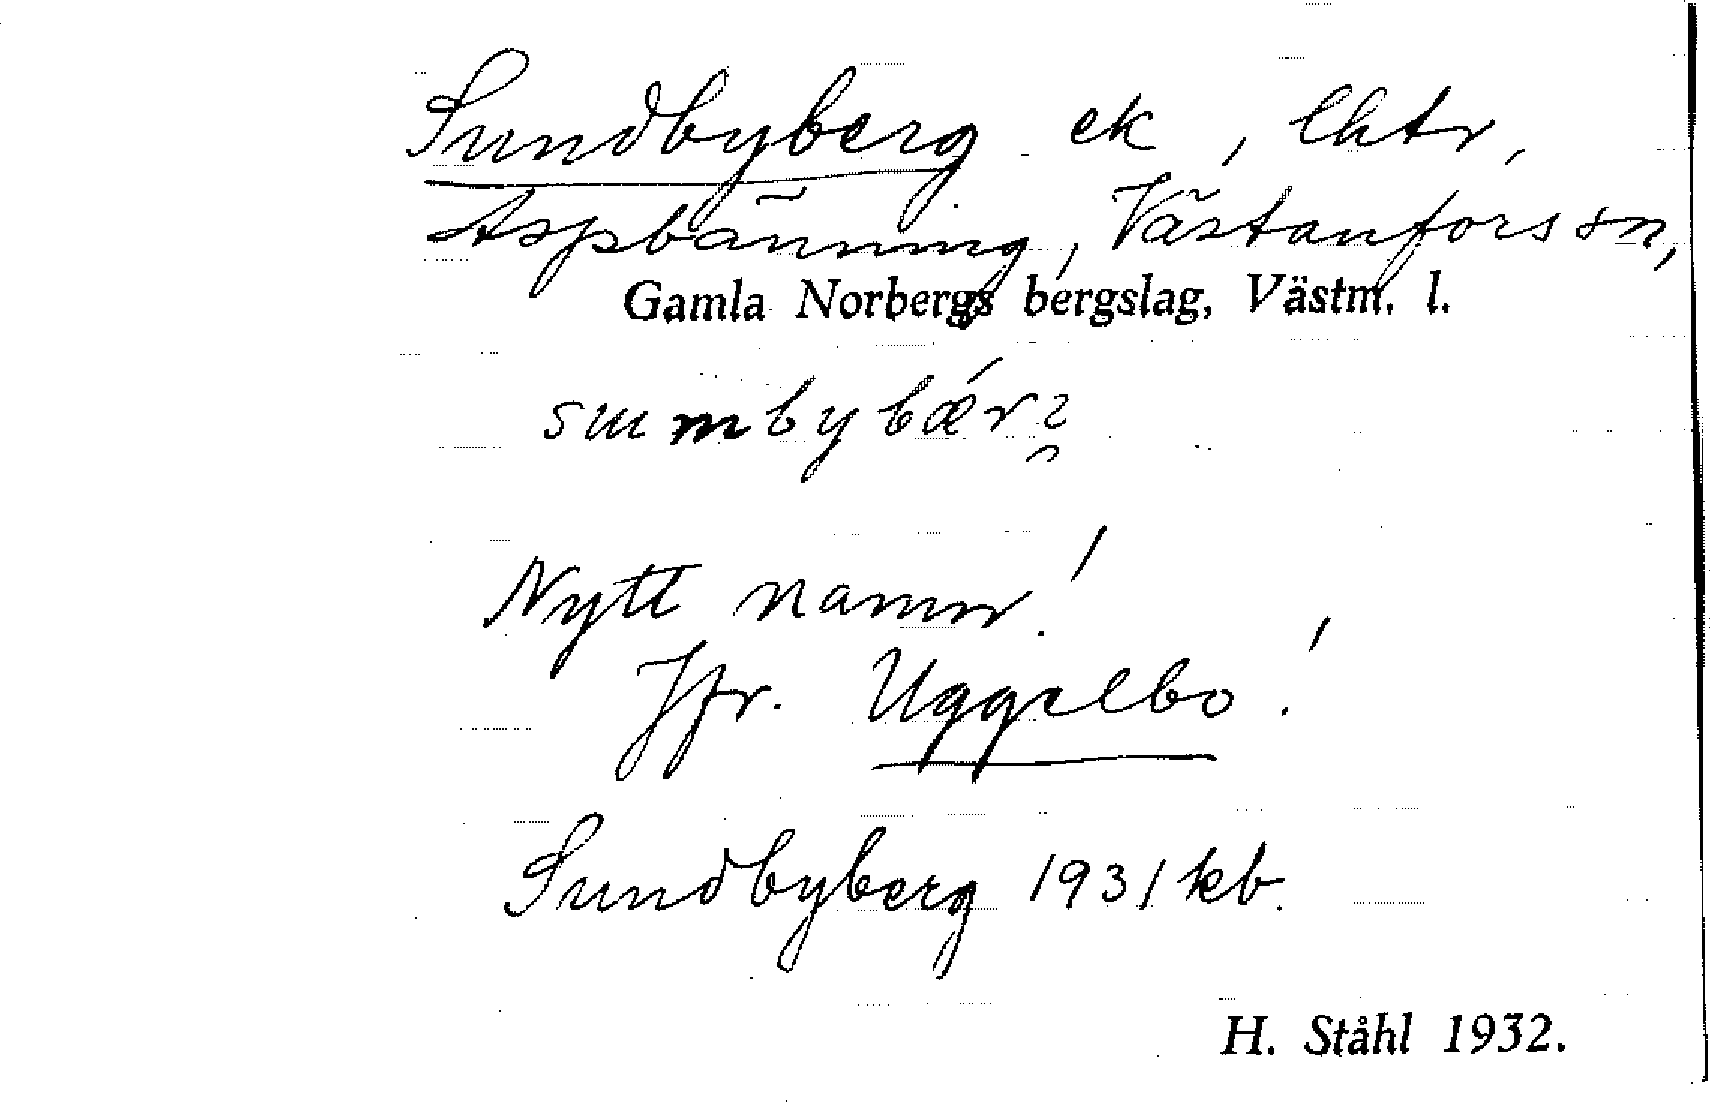 Sundbyberg ek, lhtr,
Aspbänning, Västanfors sn,
Gamla Norbergs bergslag, Västm. l.
Nytt namn!
Jfr. Uggelbo!
Sundbyberg 1931 kb.
H. Ståhl 1932.